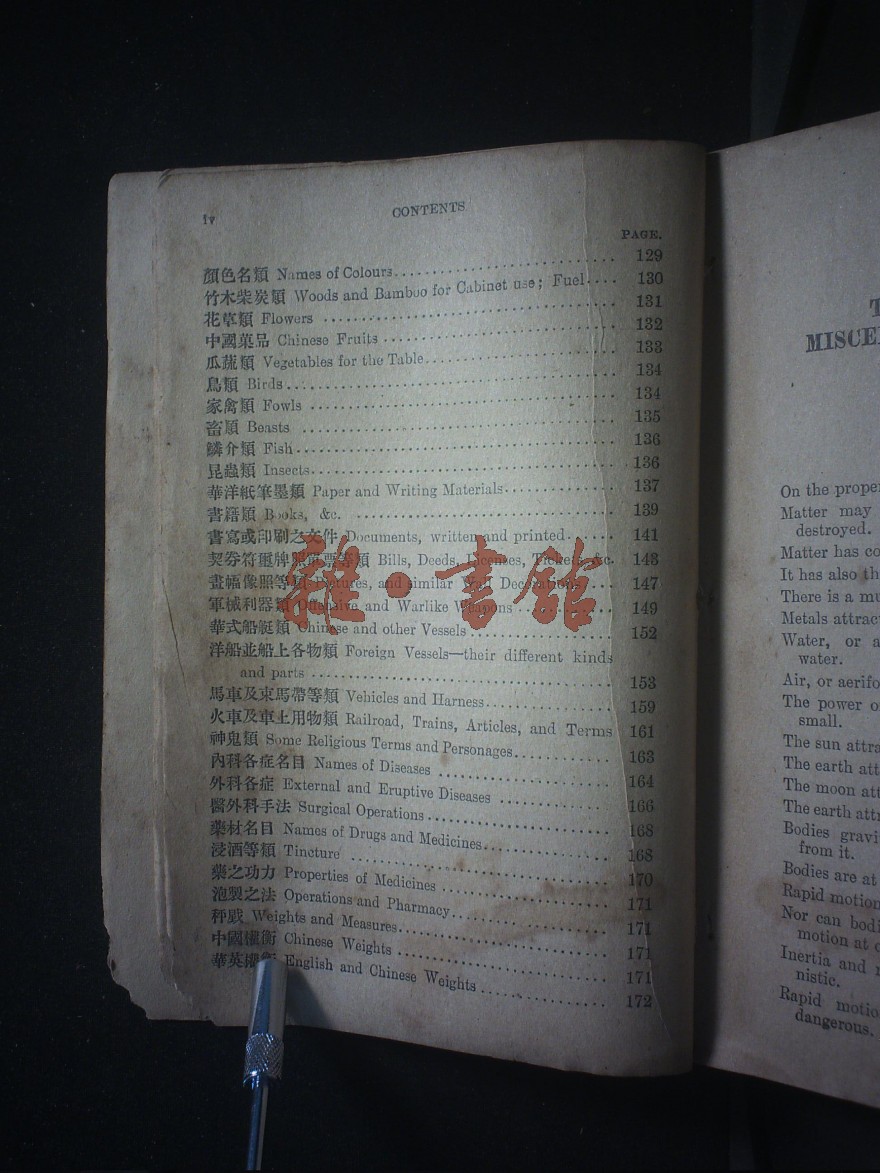 iv
CONTENTS
PAGE.
顏色名類 Names of Colours 129
竹木柴炭類 Woods and Bamboo for Cabinet use; Fuel 130
花草類 Flowers 131
中國菓品 Chinese Fruits 132
瓜蔬類 Vegetables for the Table 133
鳥類 Birds 134
家禽類 Fowls 134
畜類 Beasts 135
鱗介類 Fish 136
昆蟲類 Insects 136
華洋紙筆墨類 Paper and Writing Materials 137
書籍類 Books, &c. 139
書寫或印刷之文件 Documents, written and printed 141
契券符璽牌照單票等類 Bills, Deeds, Licenses, Tickets, etc. 143
畫幅像照等類 Pictures, and similar Wall Decorations 147
軍械利器類 Offensive and Warlike Weapons 149
華式船艇類 Chinese and other Vessels 152
洋船並船上各物類 Foreign Vessels—their different kinds
and parts 153
馬車及束馬帶等類 Vehicles and Harness 159
火車及車上用物類 Railroad, Trains, Articles, and Terms 161
神鬼類 Some Religious Terms and Personages 163
內科各症名目 Names of Diseases 164
外科各症 External and Eruptive Diseases 166
醫外科手法 Surgical Operations 168
藥材名目 Names of Drugs and Medicines 168
浸酒等類 Tincture 170
藥之功力 Properties of Medicines 171
泡製之法 Operations and Pharmacy 171
秤戥 Weights and Measures 171
中國權衡 Chinese Weights 171
華英權衡 English and Chinese Weights 172
雜·書館
T
MISCE
On the prope
Matter may
destroyed.
Matter has co
It has also th
There is a mu
Metals attrac
Water, or a
water.
Air, or aerifo
The power o
small.
The sun attra
The earth att
The moon att
The earth attr
Bodies gravi
from it.
Bodies are at
Rapid motion
Nor can bodi
motion at o
Inertia and r
nistic.
Rapid motio
dangerous.